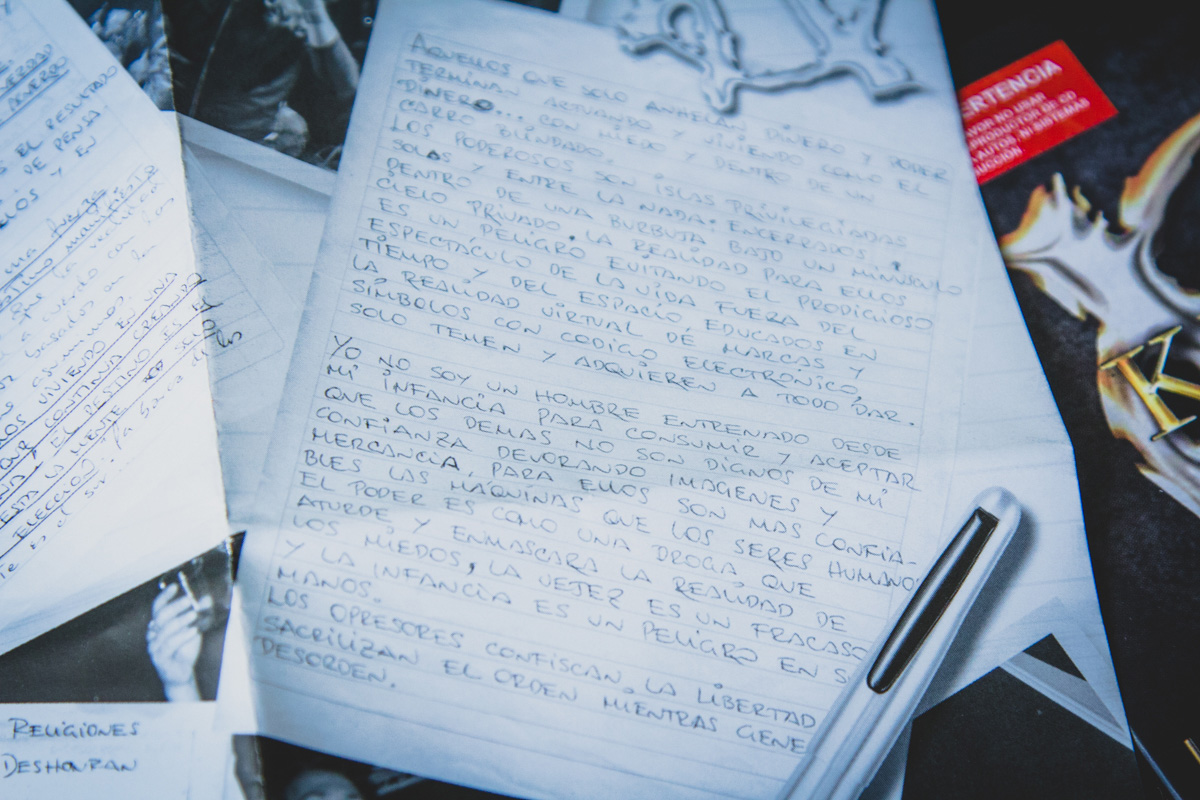 AQUELLOS QUE SOLO ANHELAN DINERO Y PODER
TERMINAN ACTUANDO Y VIVIENDO COMO EL
DINERO... CON MIEDO Y DENTRO DE UN
CARRO BLINDADO.
LOS PODEROSOS SON ISLAS PRIVILEGIADAS
SOLAS Y ENTRE LA NADA. ENCERRADOS
DENTRO DE UNA BURBUJA BAJO UN MINÚSCULO
CIELO PRIVADO. LA REALIDAD PARA ELLOS
ES UN PELIGRO. EVITANDO EL PRODIGIOSO
ESPECTÁCULO DE LA VIDA FUERA DEL
TIEMPO Y DEL ESPACIO, EDUCADOS EN
LA REALIDAD VIRTUAL DE MARCAS Y
SÍMBOLOS CON CODIGO ELECTRONICO,
SOLO TEMEN Y ADQUIEREN A TODO DAR.
YO NO SOY UN HOMBRE ENTRENADO DESDE
MI INFANCIA PARA CONSUMIR Y ACEPTAR
QUE LOS DEMAS NO SON DIGNOS DE MI
CONFIANZA DEVORANDO IMAGENES Y
MERCANCIA. PARA ELLOS SON MAS CONFIA-
BLES LAS MÁQUINAS QUE LOS SERES HUMANOS
EL PODER ES COMO UNA DROGA QUE
ATURDE Y ENMASCARA LA REALIDAD DE
LOS MIEDOS, LA VEJEZ ES UN FRACASO
Y LA INFANCIA ES UN PELIGRO EN S
MANOS.
LOS OPRESORES CONFISCAN LA LIBERTAD
SACRILIZAN EL ORDEN MIENTRAS GENE
DESORDEN.
EL RESULTADO
DE PENSA
Y EN
VIVIENDO EN UNA
CONTINUA CREADA
EL DESTINO ES EL
ESTA LA MENTE NO SOLO
ELECCION.
RELIGIONES
DESHONRAN
ERTENCIA
VOS NO USAR
PRODUCTOR DE CD
AUTOS, NI SISTEMAS
UCCIÓN
K